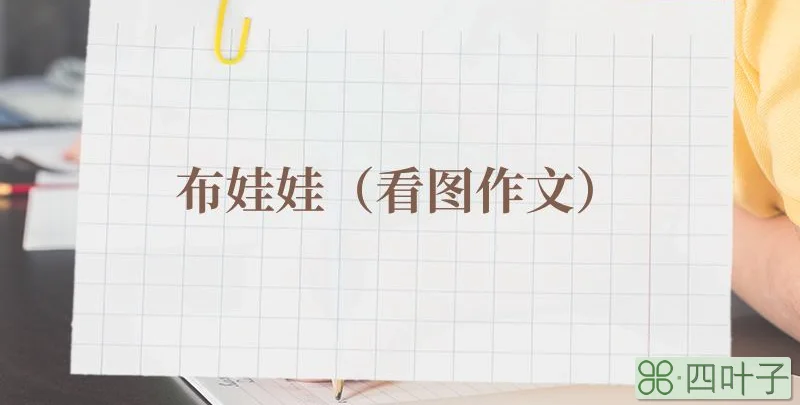 布娃娃（看图作文）
四叶子